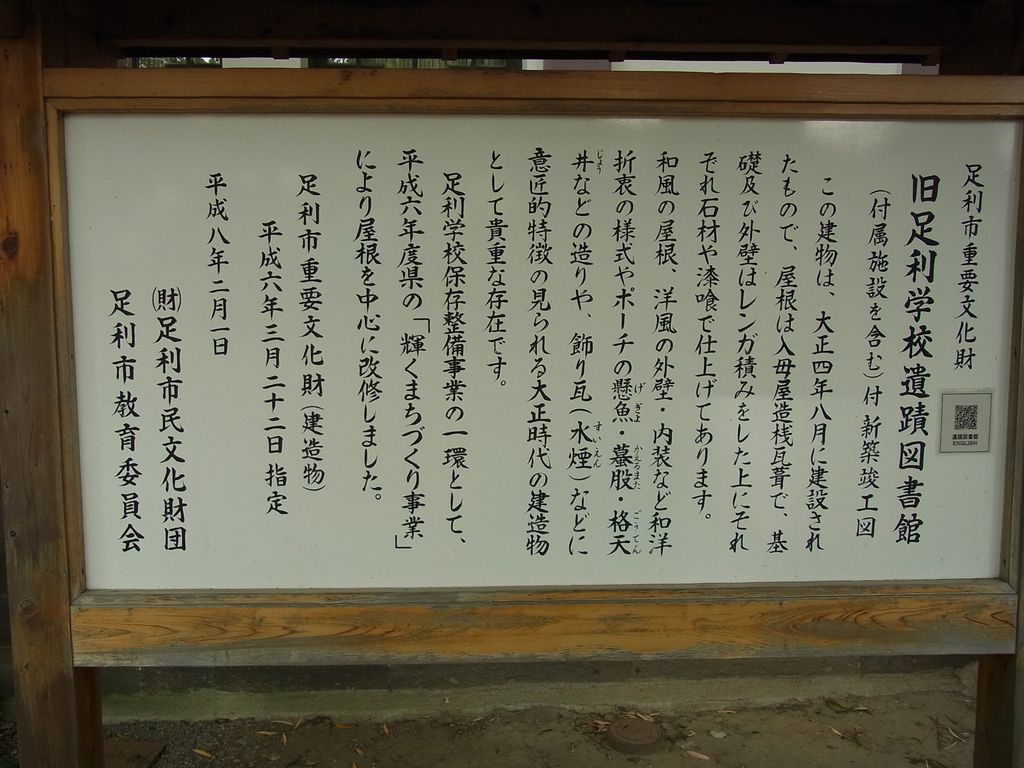 足利市重要文化財
旧足利学校遺蹟図書館
(付属施設を含む)付 新築竣工図
この建物は、大正四年八月に建設され
たもので、屋根は入母屋造桟瓦葺で、基
礎及び外壁はレンガ積みをした上にそれ
ぞれ石材や漆喰で仕上げてあります。
和風の屋根、洋風の外壁・内装など和洋
折衷の様式やポーチの懸魚・蟇股・格天
げぎよ
かえるまた
ごうてん
井などの造りや、飾り瓦(水煙)などに
じょう
すいえん
意匠的特徴の見られる大正時代の建造物
として貴重な存在です。
足利学校保存整備事業の一環として、
平成六年度県の「輝くまちづくり事業」
により屋根を中心に改修しました。
足利市重要文化財(建造物)
平成六年三月二十二日 指定
平成八年二月一日
(財)足利市民文化財団
足利市教育委員会
遺蹟図書館
ENGLISH